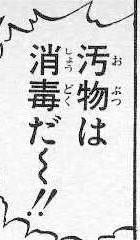 汚物は
消毒だ〜!!